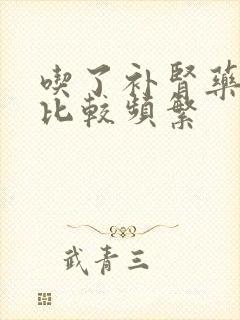 喫了补腎藥
比較頻繁
武青三